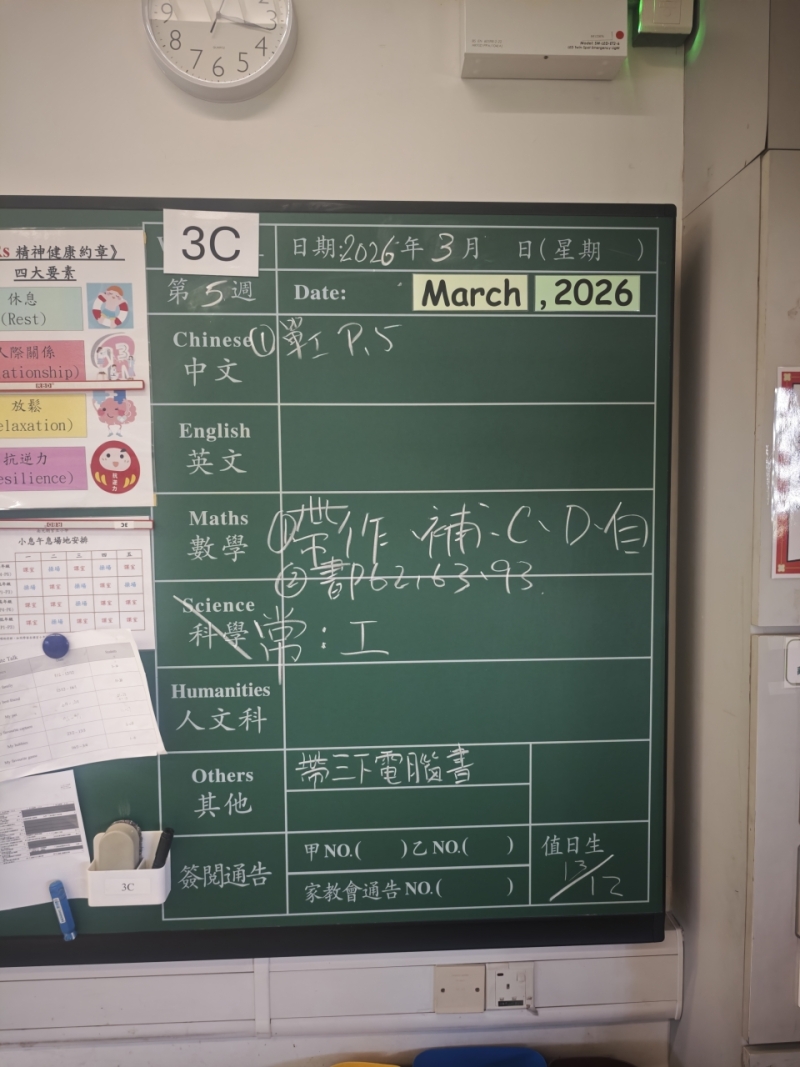 9 8 7 6 5 4 3
3C
日期:2026年3月 日(星期 )
第5週
Date: March , 2026
精神健康約章》
四大要素
休息
(Rest)
人際關係
ationship)
放鬆
elaxation)
抗逆力
esilience)
抗逆力
Chinese ① 單工 P.5
中文
English
英文
Maths ①帶作、補、C、D、自
數學 ②書P62,63、93.
Science
科學 常:工
Humanities
人文科
Others 帶三下電腦書
其他
簽閱通告
甲NO.( )乙NO.( )
家教會通告NO.( )
值日生
13/12
小息午息場地安排
一 二 三 四 五
3C